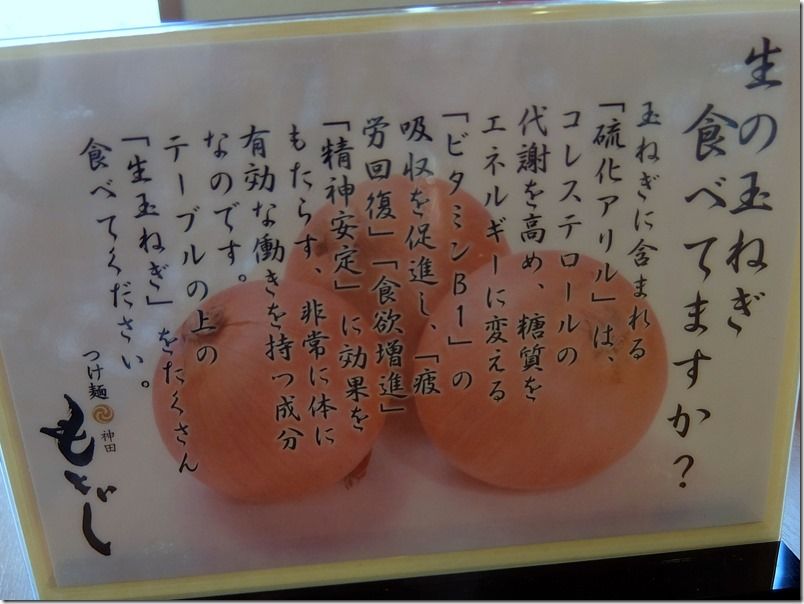 生の玉ねぎ
食べてますか？
玉ねぎに含まれる
「硫化アリル」は、
コレステロールの
代謝を高め、糖質を
エネルギーに変える
「ビタミンB1」の
吸収を促進し、「疲
労回復」「食欲増進」
「精神安定」に効果を
もたらす、非常に体に
有効な働きを持つ成分
なのです。
テーブルの上の
「生玉ねぎ」をたくさん
食べてください。
つけ麺
神田